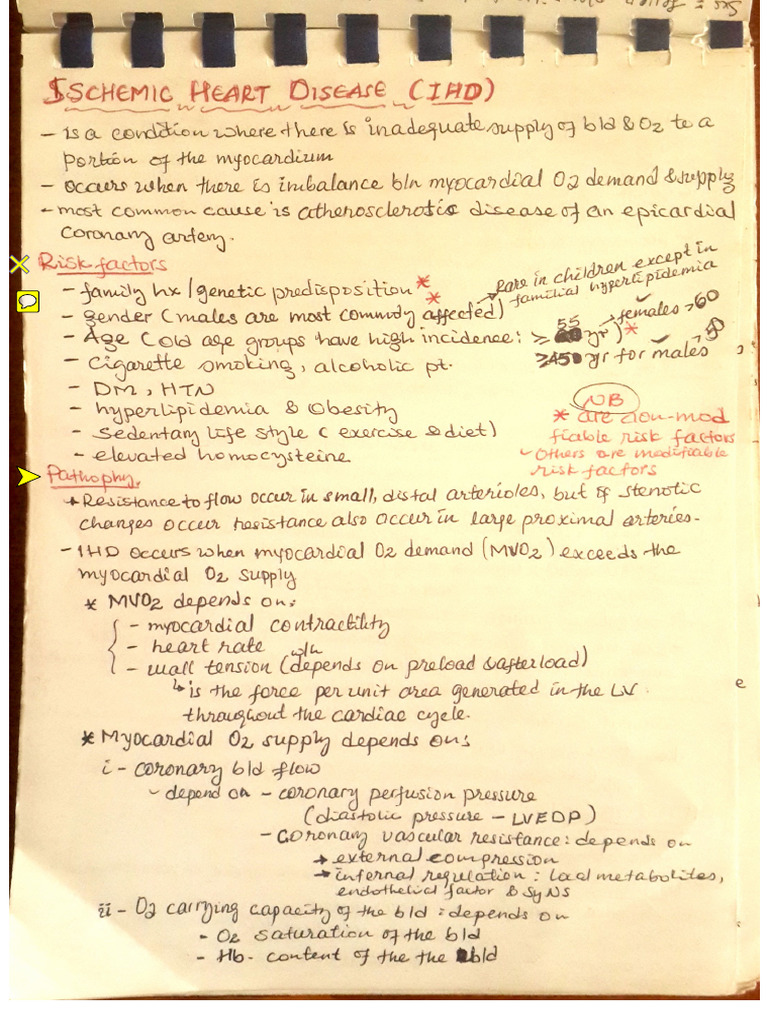 ISCHEMIC HEART DISEASE (IHD)
- is a condition where there is inadequate supply of bld & O2 to a
portion of the myocardium
- occurs when there is imbalance b/n myocardial O2 demand & supply
- most common cause is atherosclerotic disease of an epicardial
coronary artery.
Risk factors
- family hx / genetic predisposition *
- gender (males are most commonly affected) * → rare in children except in
familial hyperlipidemia
- Age (old age groups have high incidence: ≥ 55 yr) * → females >60
≥45 yr for males
- cigarette smoking, alcoholic pt.
- DM, HTN
- hyperlipidemia & obesity
- sedentary life style (exercise & diet)
- elevated homocysteine
NB
* are non-mod
fiable risk factors
- Others are modifiable
risk factors
Pathophy.
→ Resistance to flow occur in small, distal arterioles, but if stenotic
changes occur resistance also occur in large proximal arteries.
- IHD occurs when myocardial O2 demand (MVO2) exceeds the
myocardial O2 supply
* MVO2 depends on:
- myocardial contractility
- heart rate
- wall tension (depends on preload & afterload)
↳ is the force per unit area generated in the LV
throughout the cardiac cycle.
* Myocardial O2 supply depends on:
i - coronary bld flow
- depend on - coronary perfusion pressure
(diastolic pressure - LVEDP)
- Coronary vascular resistance: depends on
→ external compression
→ internal regulation: local metabolites,
endothelial factor & SyNS
ii - O2 carrying capacity of the bld: depends on
- O2 saturation of the bld
- Hb- content of the the bld